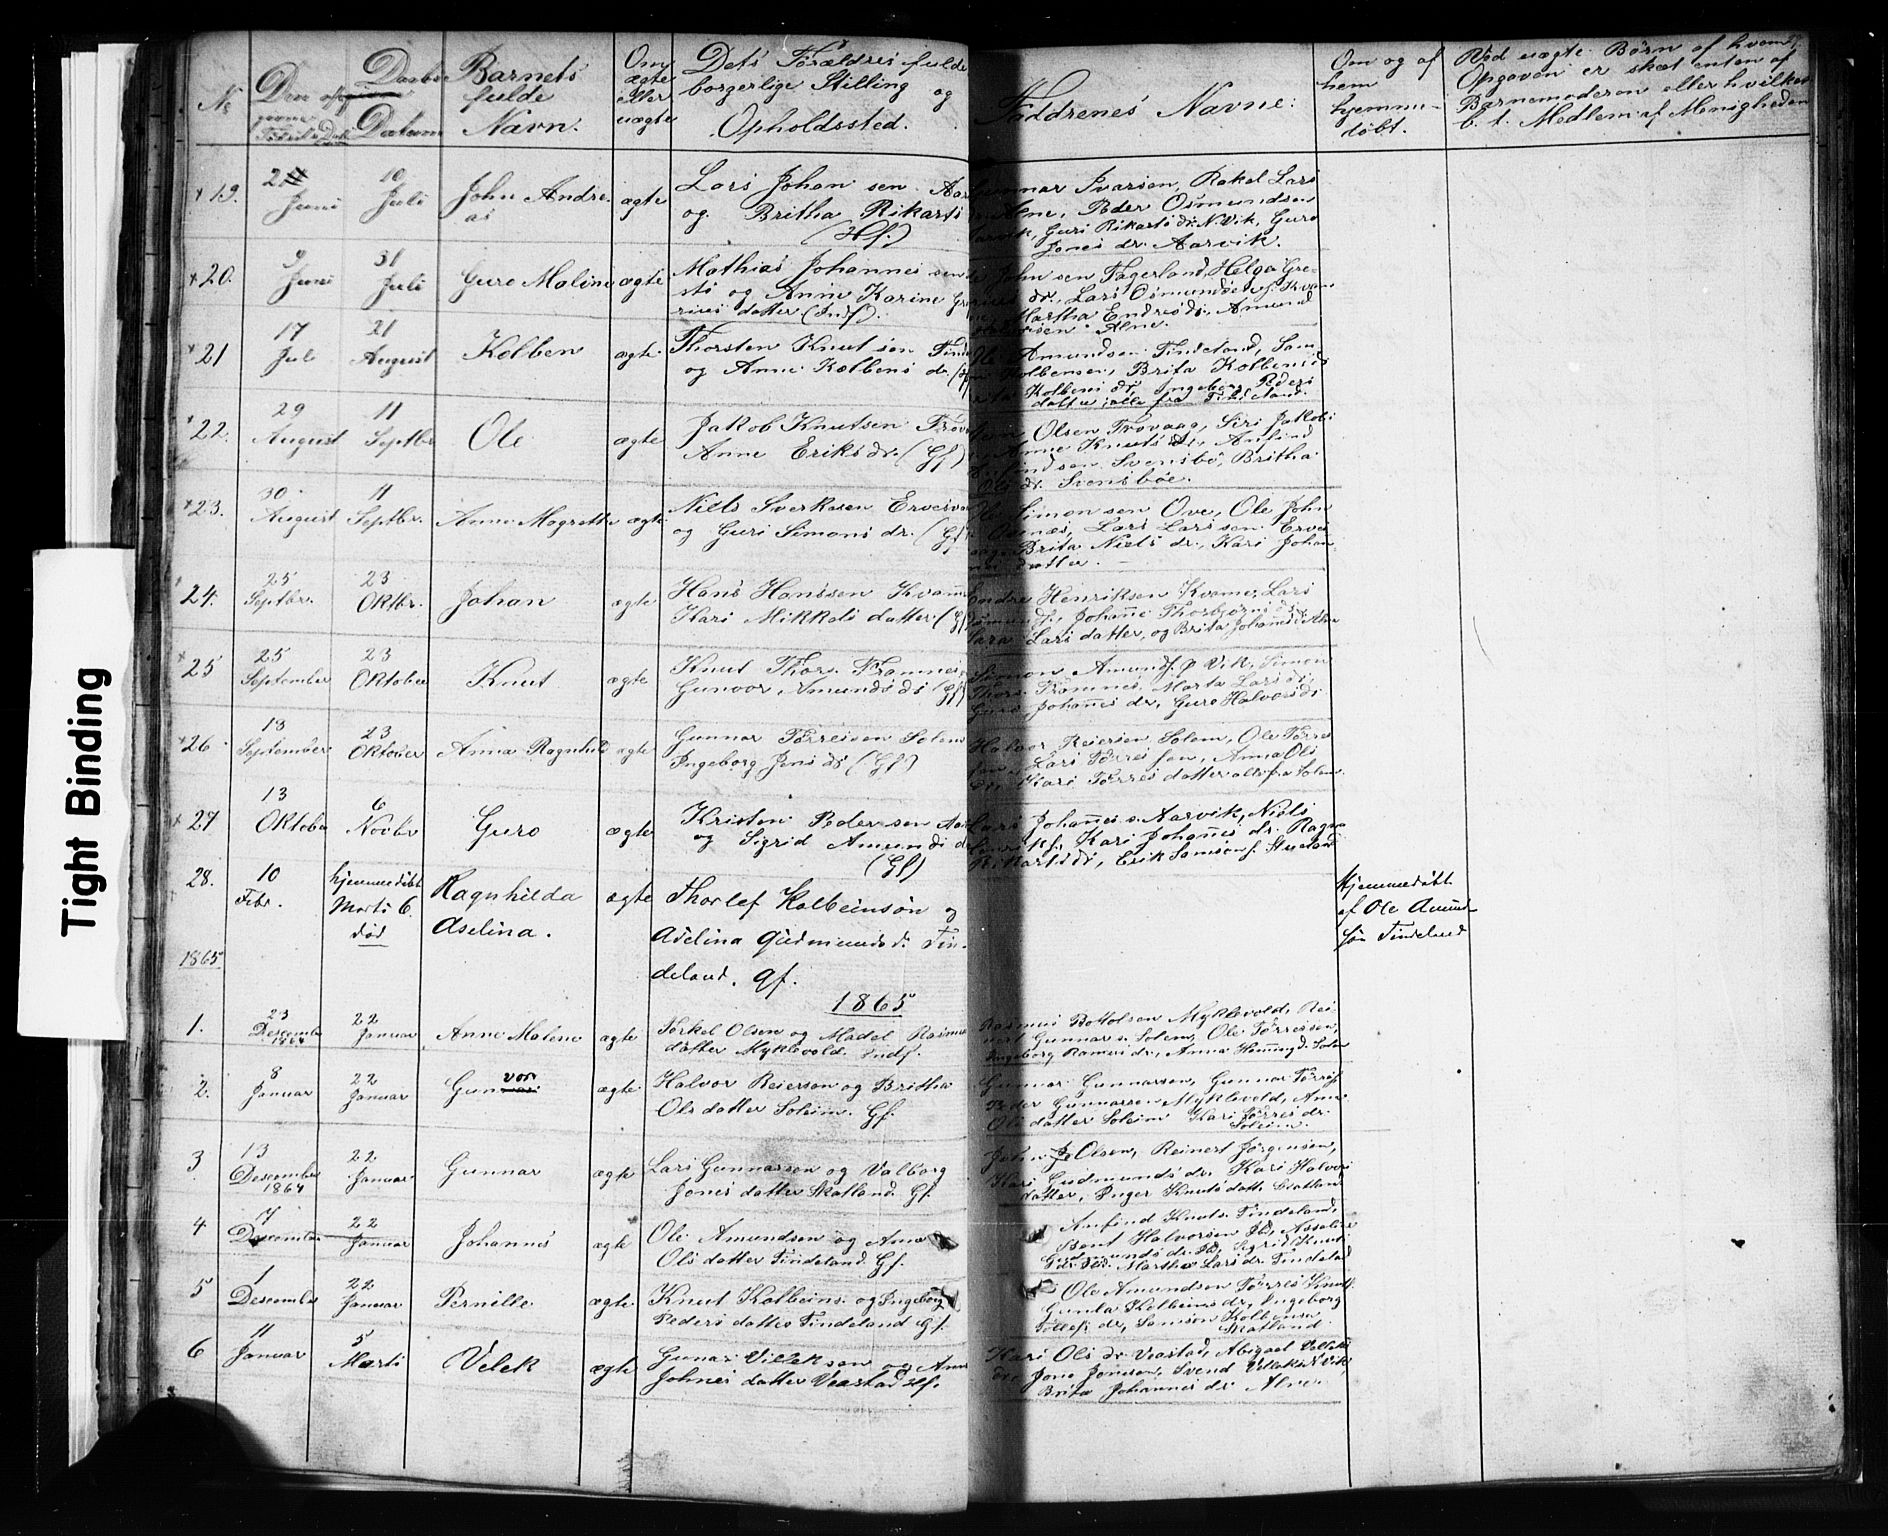 Tight Binding
No
Den
Daabs
Datum
Barnets
fulde
Navn.
Om
ægte
eller
uægte
Dets Forældres fulde
borgerlige Stilling og
Opholdssted.
Faddrenes Navne:
Om og af
hvem
hjemme-
døbt.
Ved uægte Børn af hvem
Opgaven er skæt enten af
Barnemoderen eller hvilket
b. t. Medlem af Menigheden
19.
Juni
10
Juli
John Andre-
as
ægte
Lars Johan sen
og Britha Rikarts
(Hf.)
Gunnar Ivarsen, Rakel Lars
Alne, Peder Osmundsen
Guri Rikarts dr. N. Vik, Guro
Jones dr. Aarvik.
20.
9
Juni
31
Juli
Guro Maline
ægte
Mathias Johannes sen
og Anne Karine
datter (Indf.)
John sen Fagerland, Helga Gre-
dr., Lars Osmundsen
Martha Endres dr., Amund
Alne.
21
17
Juli
21
August
Kolben
ægte
Thorsten Knut sen
og Anne Kolbens dr.
Amundsen Tindeland, Sam-
Kolbensen, Brita Kolbens dr
Kolbens dr, Ingeborg Peders
datter, alle fra Tindeland.
22.
29
August
11
Septbr
Ole
ægte
Jakob Knutsen
Anne Eriks dr. (Gf)
Olsen Trovaag, Siri Jakobs
Anne Knuts dr.,
Svensbø, Britha
Ols dr. Svensbøe.
23.
30
August
11
Septbr.
Anne Magrethe
ægte
Niels Sverkesen
og Guri Simons dr. (Gf)
Simonsen Ove, Ole John
Lars Lars sen
Brita Niels dr., Kari Johan-
datter.
24.
25
Septbr.
23
Oktbr.
Johan
ægte
Hans Hanssen
Kari Mikkels datter
Endre Henriksen Kvame, Lars
Johanne Thorbjørns dr
Lars datter, og Brita Johannes dr.
25
25
September
23
Oktober
Knut
ægte
Knut Thors. Framnes
Gunvor Amunds dr (Gf)
Simon Amundf. Ø Vik, Simon
Thors. Framnes, Marta Lars dr,
Guro Johannes dr, Guro Halvors dr
26
18
September
23
Oktober
Anna Ragnhild
ægte
Gunnar Tørressen
Ingeborg Jens dr (Gf)
Halvor Reiersen Solem, Ole Tørres
sen, Lars Tørressen, Anna Ols
dr, Kari Tørres datter alle fra Solem.
27
13
Oktober
6
Novbr
Guro
ægte
Kristen Peder sen
og Sigrid Amunds dr
(Gf)
Lars Johannes s. Aarvik, Niels
Kari Johannes dr. Ragna
Rikarts dr, Erik Samson s.
28.
10
Febr.
hjemmedøbt
Marts 6.
død
Ragnhilda
Aselina.
ægte
Thorlef Kolbeinsøn og
Adelina Gudmunds d. Tin-
deland. gf.
Hjemmedøbt
af Ole Amund-
søn Tindeland
1865
1865
1.
23
Descembr
1864
22
Januar
Anne Malene
ægte
Torkel Olsen og Madel Rasmus
datter Myklevold. Indf.
Rasmus Bottolsen Myklevold, Rei-
nert Gunnar s. Solem, Ole Tørressen,
Ingeborg Rasmus dr, Anna Hemingd. Solem
2.
8
Januar
22
Januar
Gunvor
ægte
Halvor Reierson og Britha
Ols datter Soleim. Gf.
Gunnar Gunnarsen, Gunnar Tørresf.
Peder Gunnarsen Myklevold, Anne
Ols datter Soleim Kari Tørres dr.
Soleim.
3
13
Descember
1864
22
Januar
Gunnar
ægte
Lars Gunnarsen og Valborg
Jones datter Skatland. Gf.
John Olsen, Reinert Jørgensen,
Kari Gudmunds dr. Kari Halvors
datter, Inger Knuts datt. Skatland
4
7
Descember
22
Januar
Johannes
ægte
Ole Amundsen og Anna
Ols datter Tindeland. Gf.
Anfind Knuts. Tindeland,
Bent Halvorsen Ib, Asseline
Gudmunds dr. Ib, Sigrid Knuts
Martha Lars dr. Tindeland
5
1
Descember
22
Januar
Pernille
ægte
Knut Kolbeins. og Ingeborg
Peders datter Tindeland Gf.
Ole Amundsen Tørres Knutf.
Gunla Kolbeins dr, Ingeborg
Tollef dr, Samson Kolbensen
Skatland.
6
11
Januar
5
Marts
Velek
ægte
Gunar Villeksen og Anna
Johnes datter Veastad slf.
Kari Ols dr Veastad, Abigael Velleks
dr, Jone Jonsen, Svend Velleks N Vik,
Brita Johannes dr Alne.